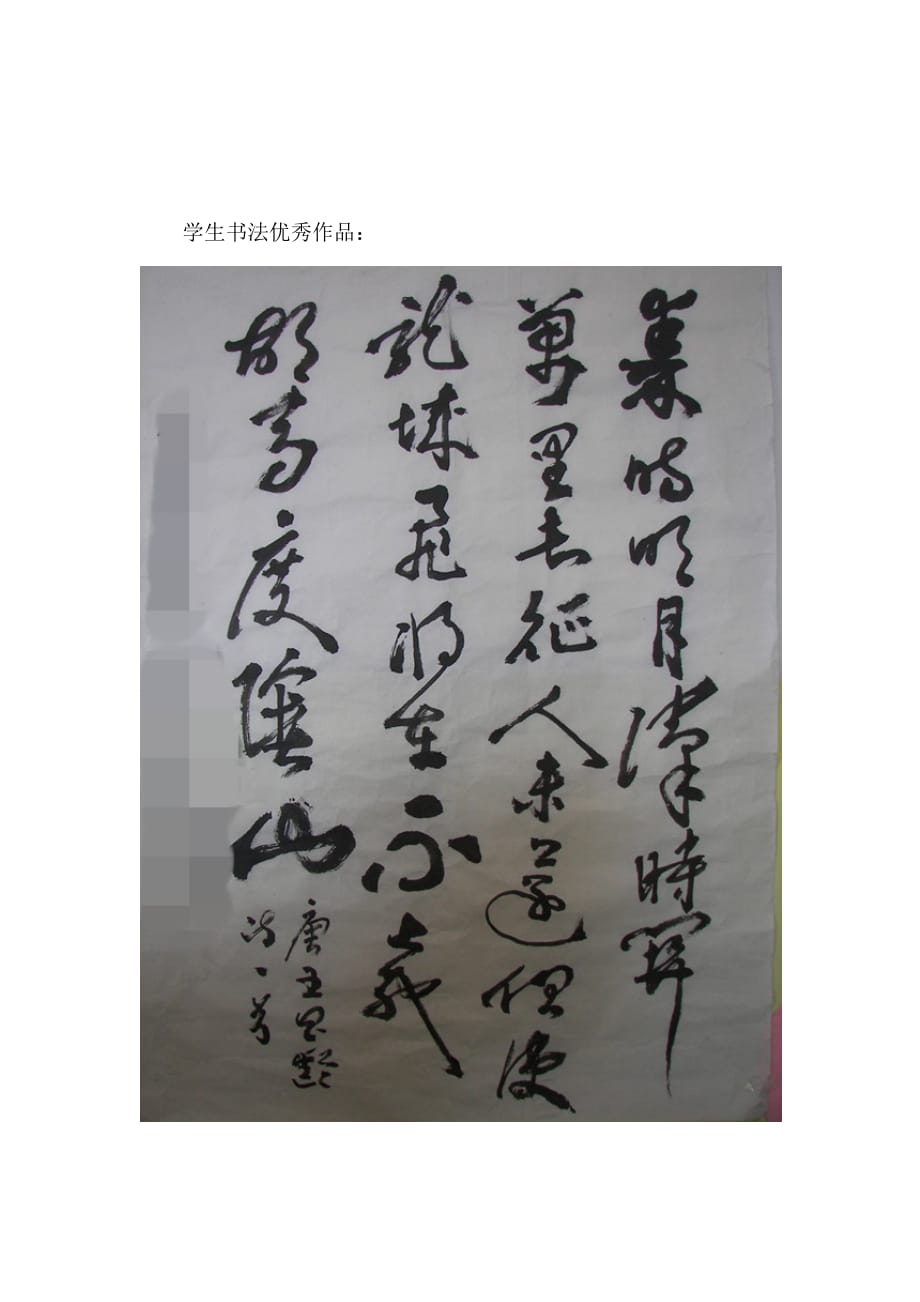 学生书法优秀作品：
秦時明月漢時關
萬里長征人未還但使
龍城飛將在不教
胡馬度陰山
唐王昌齡
诗一首